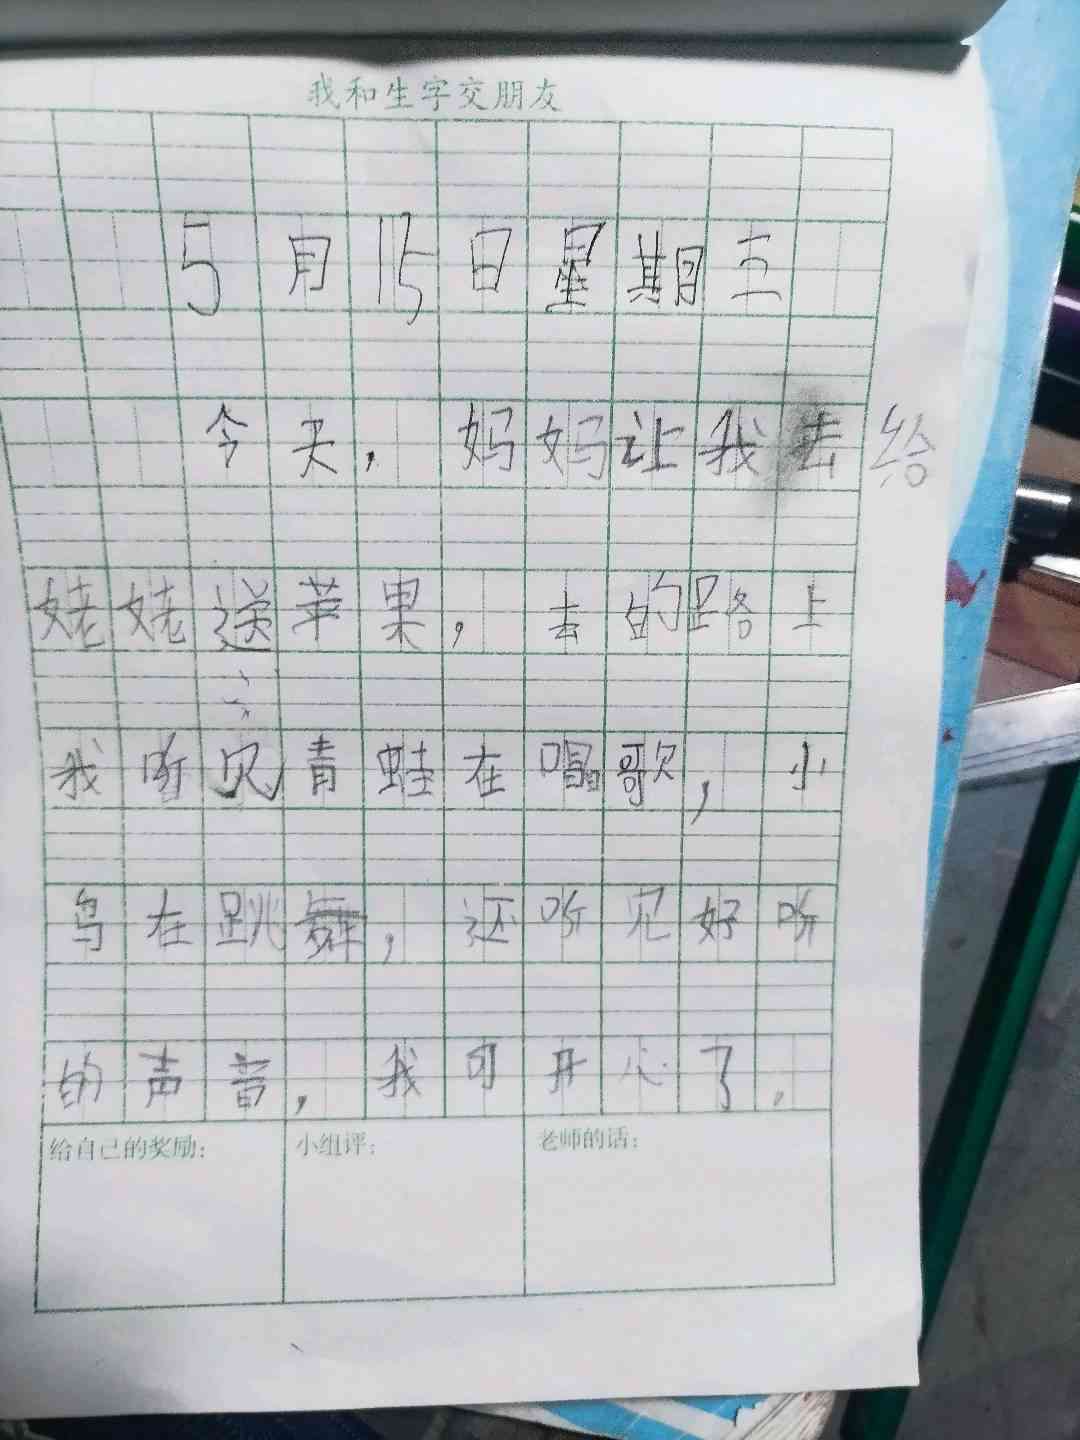 我和生字交朋友
5月15日星期三
今天,妈妈让我去给
姥姥送苹果,去的路上
我听见青蛙在唱歌,小
鸟在跳舞,还听见好听
的声音,我可开心了.
给自己的奖励:
小组评:
老师的话: